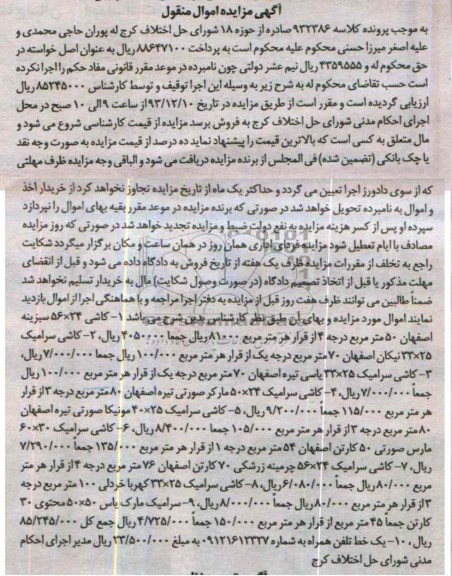 آگهی مزایده اموال منقول
به موجب پرونده کلاسه ۹۳۲۳۸۶ صادره از حوزه ۱۸ شورای حل اختلاف کرج له پوران حاجی محمدی و
علیه اصغر میرزا حسنی محکوم علیه محکوم است به پرداخت ۸۸۶۴۷۱۰۰ ریال به عنوان اصل خواسته در
حق محکوم له و ۴۳۵۹۵۵۵ ریال نیم عشر دولتی چون نامبرده در موعد مقرر قانونی مفاد حکم را اجرا نکرده
است حسب تقاضای محکوم له به شرح زیر به وسیله این اجرا توقیف و توسط کارشناس ۸۵۲۴۵۰۰۰ ریال
ارزیابی گردیده است و مقرر است از طریق مزایده در تاریخ ۹۳/۱۲/۱۰ از ساعت ۹ الی ۱۰ صبح در محل
اجرای احکام مدنی شورای حل اختلاف کرج به فروش برسد مزایده از قیمت کارشناسی شروع می شود و
مال متعلق به کسی است که بالاترین قیمت را پیشنهاد نماید ده درصد از قیمت مزایده به صورت وجه نقد
یا چک بانکی (تضمین شده) فی المجلس از برنده مزایده دریافت می شود و الباقی وجه مزایده ظرف مهلتی
که از سوی دادورز اجرا تعیین می گردد و حداکثر یک ماه از تاریخ مزایده تجاوز نخواهد کرد از خریدار اخذ
و اموال به نامبرده تحویل خواهد شد در صورتی که برنده مزایده در موعد مقرر بقیه بهای اموال را نپردازد
سپرده او پس از کسر هزینه مزایده به نفع دولت ضبط و مزایده تجدید خواهد شد در صورتی که روز مزایده
مصادف با ایام تعطیل شود مزایده فردای اداری همان روز در همان ساعت و مکان برگزار میگردد شکایت
راجع به تخلف از مقررات مزایده ظرف یک هفته از تاریخ فروش به دادگاه داده می شود و قبل از انقضای
مهلت مذکور یا قبل از اتخاذ تصمیم دادگاه (در صورت وصول شکایت) مال به خریدار تسلیم نخواهد شد
ضمناً طالبین می توانند ظرف هفت روز قبل از مزایده به دفتر اجرا مراجعه و با هماهنگی اجرا از اموال بازدید
نمایند اموال مورد مزایده و بهای آن طبق نظر کارشناس بدین شرح می باشد ۱- کاشی ۲۴×۵۶ سبزینه
اصفهان ۵۰ متر مربع درجه ۴ از قرار هر متر مربع ۸۱۰۰۰ ریال جمعا ۴۰۵۰۰۰۰ ریال، ۲- کاشی سرامیک
۲۵×۳۳ نیکان اصفهان ۷۰ متر مربع درجه یک از قرار هر متر مربع ۱۰۰/۰۰۰ ریال جمعا ۷/۰۰۰/۰۰۰ ریال،
۳- کاشی سرامیک ۲۵×۳۳ یاسی تیره اصفهان ۷۰ متر مربع درجه یک از قرار هر متر مربع ۱۰۰/۰۰۰ ریال
جمعاً ۷/۰۰۰/۰۰۰ ریال، ۴- کاشی سرامیک ۲۴×۵۰ مارکر صورتی تیره اصفهان ۸۰ متر مربع درجه ۳ از قرار
هر متر مربع ۱۱۵/۰۰۰ جمعاً ۹/۲۰۰/۰۰۰ ریال، ۵- کاشی سرامیک ۲۵×۴۰ مونیکا صورتی تیره اصفهان
۸۰ متر مربع درجه ۳ از قرار هر متر مربع ۱۰۵/۰۰۰ جمعا ۸/۴۰۰/۰۰۰ ریال، ۶- کاشی سرامیک ۳۰×۶۰
مارس صورتی ۵۰ کارتن اصفهان ۵۴ متر مربع درجه ۱ از قرار هر متر مربع ۱۳۵/۰۰۰ جمعاً ۷/۲۹۰/۰۰۰
ریال، ۷- کاشی سرامیک ۲۴×۵۶ چرمینه زرشکی ۷۰ کارتن اصفهان ۷۶ متر مربع درجه ۴ از قرار هر متر
مربع ۸۰/۰۰۰ ریال جمعاً ۶/۰۸۰/۰۰۰ ریال، ۸- کاشی سرامیک ۲۵×۳۳ کهربا خردلی ۱۰۰ متر مربع درجه
۳ از قرار هر متر مربع ۸۰/۰۰۰ ریال جمعاً ۸/۰۰۰/۰۰۰ ریال، ۹- سرامیک مارک یاس ۵۰×۵۰ محتوی ۳۰
کارتن جمعاً ۴۵ متر مربع از قرار هر متر مربع ۱۵۰/۰۰۰ جمعاً ۴/۷۲۵/۰۰۰ ریال جمع کل ۸۵/۲۴۵/۰۰۰
ریال، ۱۰- یک خط تلفن همراه به شماره ۰۹۱۲۱۶۱۲۳۲۷ به مبلغ ۲۳/۵۰۰/۰۰۰ ریال مدیر اجرای احکام
مدنی شورای حل اختلاف کرج